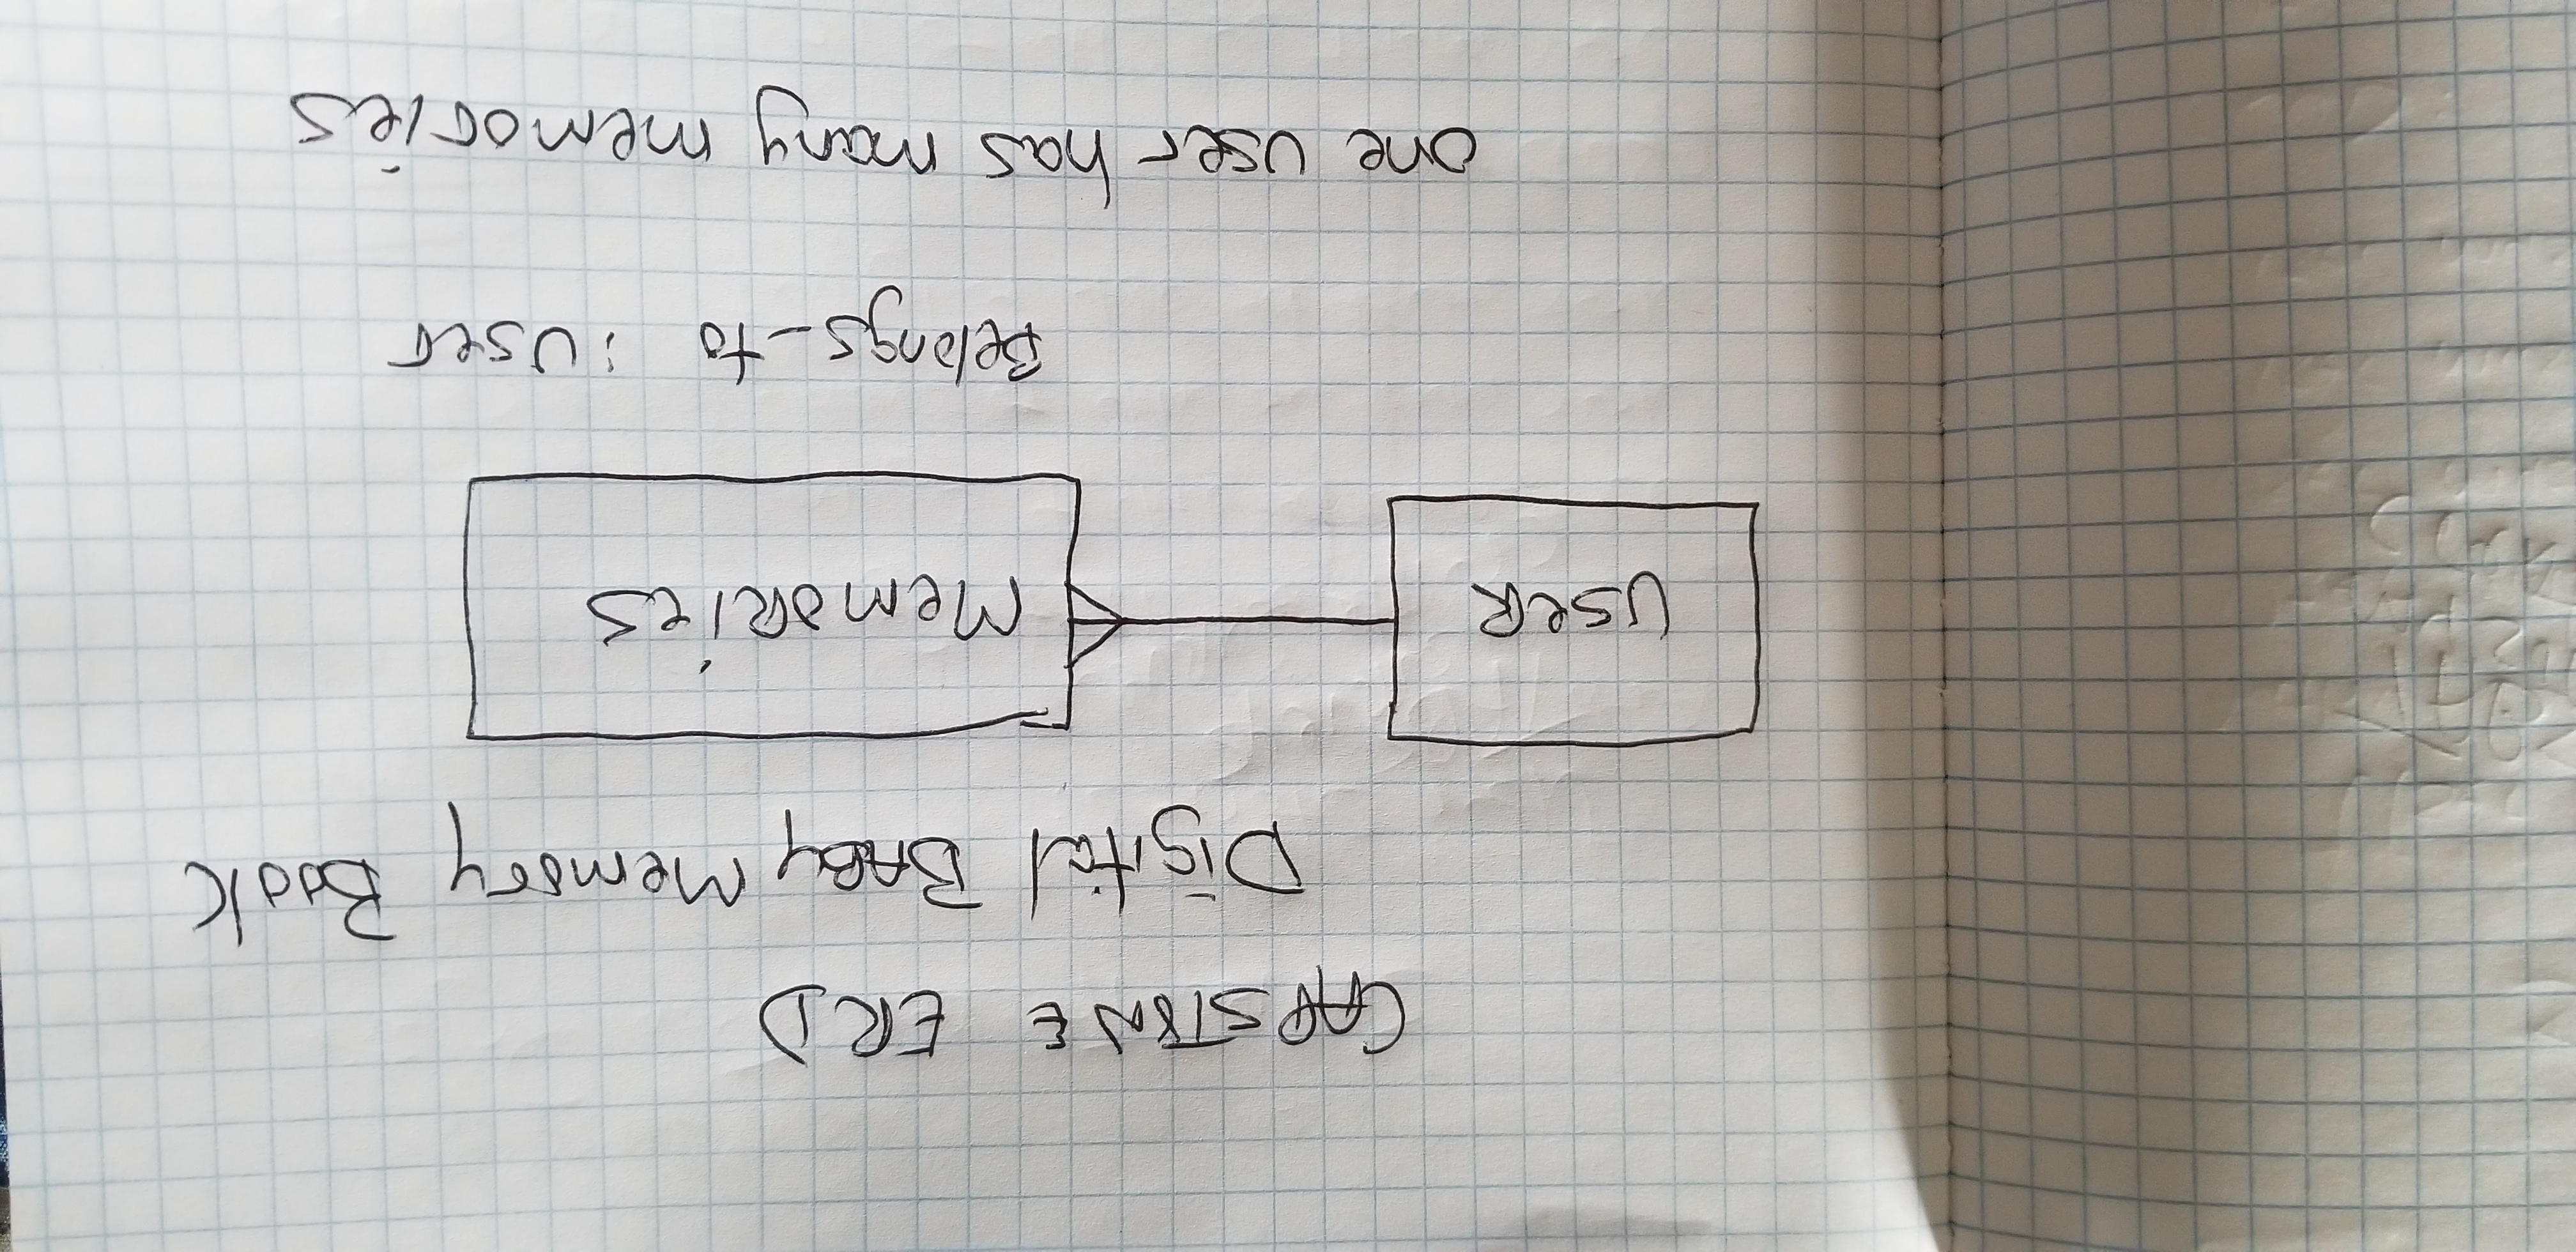 CAPSTONE ERD
Digital BABY Memory Book
USER
Memories
Belongs_to :user
one user has many memories